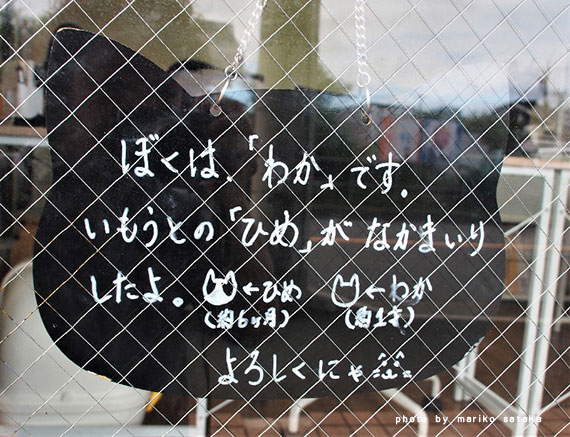 ぼくは、「わか」です。
いもうとの「ひめ」が なかまいり
したよ。 ←ひめ ←わか
(約6ヶ月) (約1才)
よろしくにゃ
photo by mariko sataka